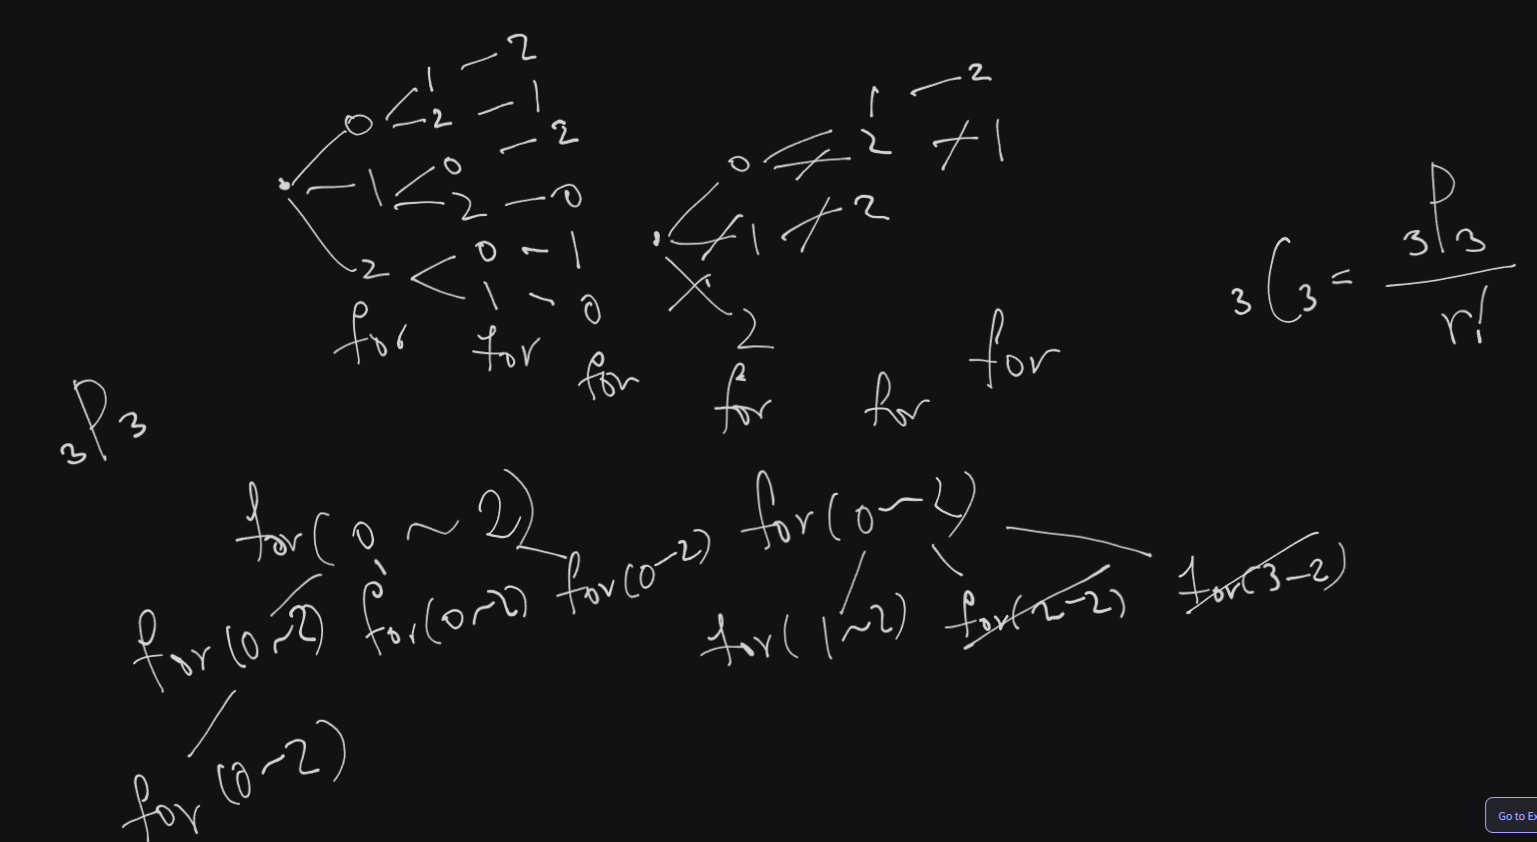 1 - 2
0 2 - 1
1 0 - 2
2 - 0
2 0 - 1
1 - 0
for for for
1 - 2
0 2 1
1 2
2
for for for
3C3 = 3P3 / r!
3P3
for(0 ~ 2)
for(0~2) for(0~2) for(0-2)
for(0-2)
for(0~2)
for(1~2) for(2-2) for(3-2)
Go to Ex